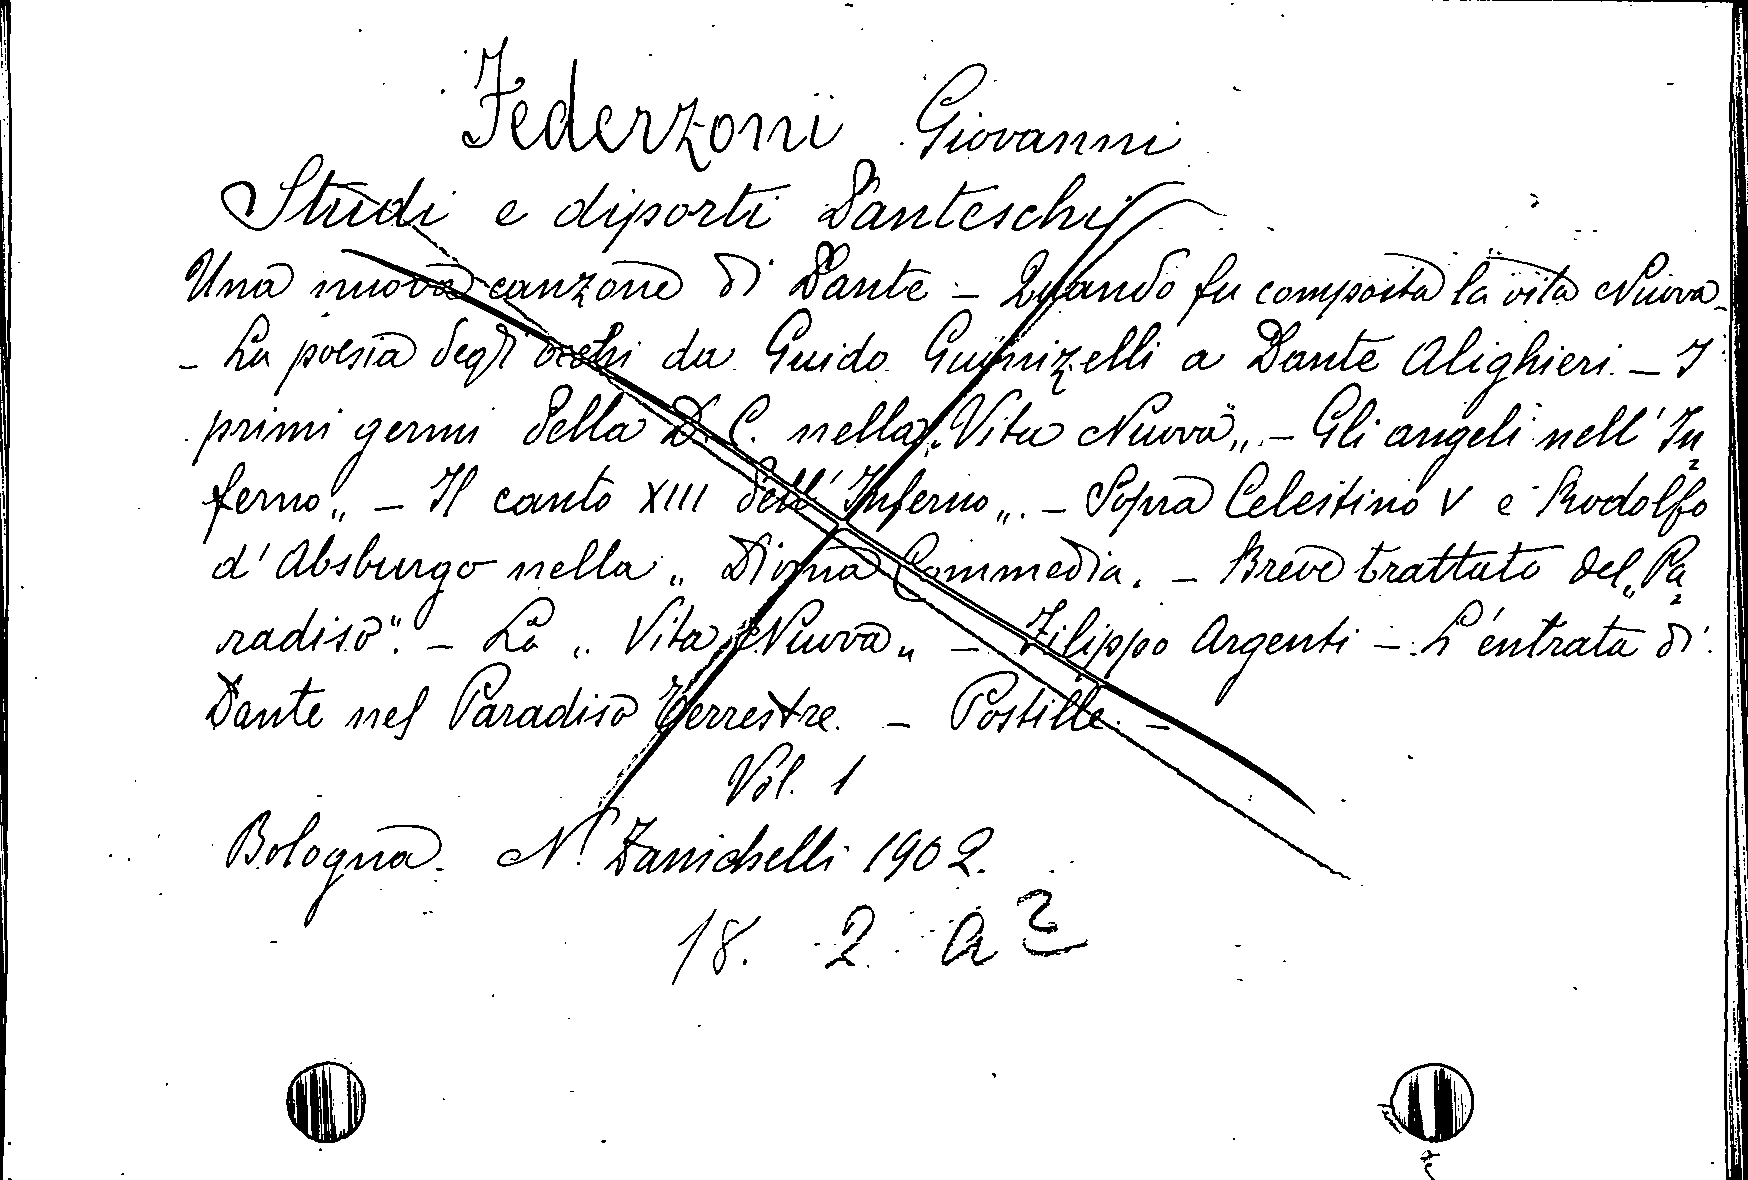 Federzoni Giovanni
Studi e diporti Danteschi
Una nuova canzone di Dante - Quando fu composta la vita Nuova -
- La poesia degli occhi da Guido Guinizelli a Dante Alighieri - I
primi germi della D. C. nella „Vita Nuova„ - Gli angeli nell' In=
ferno„ - Il canto XIII dell' Inferno„. - Sopra Celestino V e Rodolfo
d' Absburgo nella „ Divina Commedia. - Breve trattato del „Pa=
radiso". - La „ Vita Nuova„ - Filippo Argenti - L'entrata di
Dante nel Paradiso Terrestre. - Postille. -
Vol. 1
Bologna. N. Zanichelli 1902.
18. 2. a 2